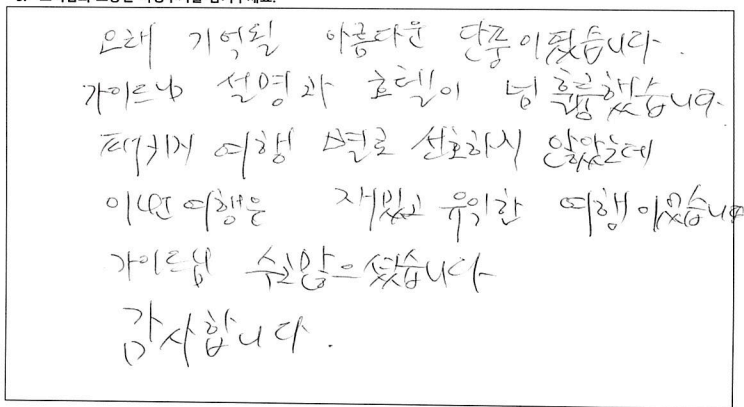 오래 기억될 아름다운 단풍이였습니다.
가이드님 설명과 호텔이 넘 훌륭했습니다.
패키지 여행 별로 선호하지 않았는데
이번 여행은 재밌고 유익한 여행이었습니다
가이드님 수고많으셨습니다
감사합니다.